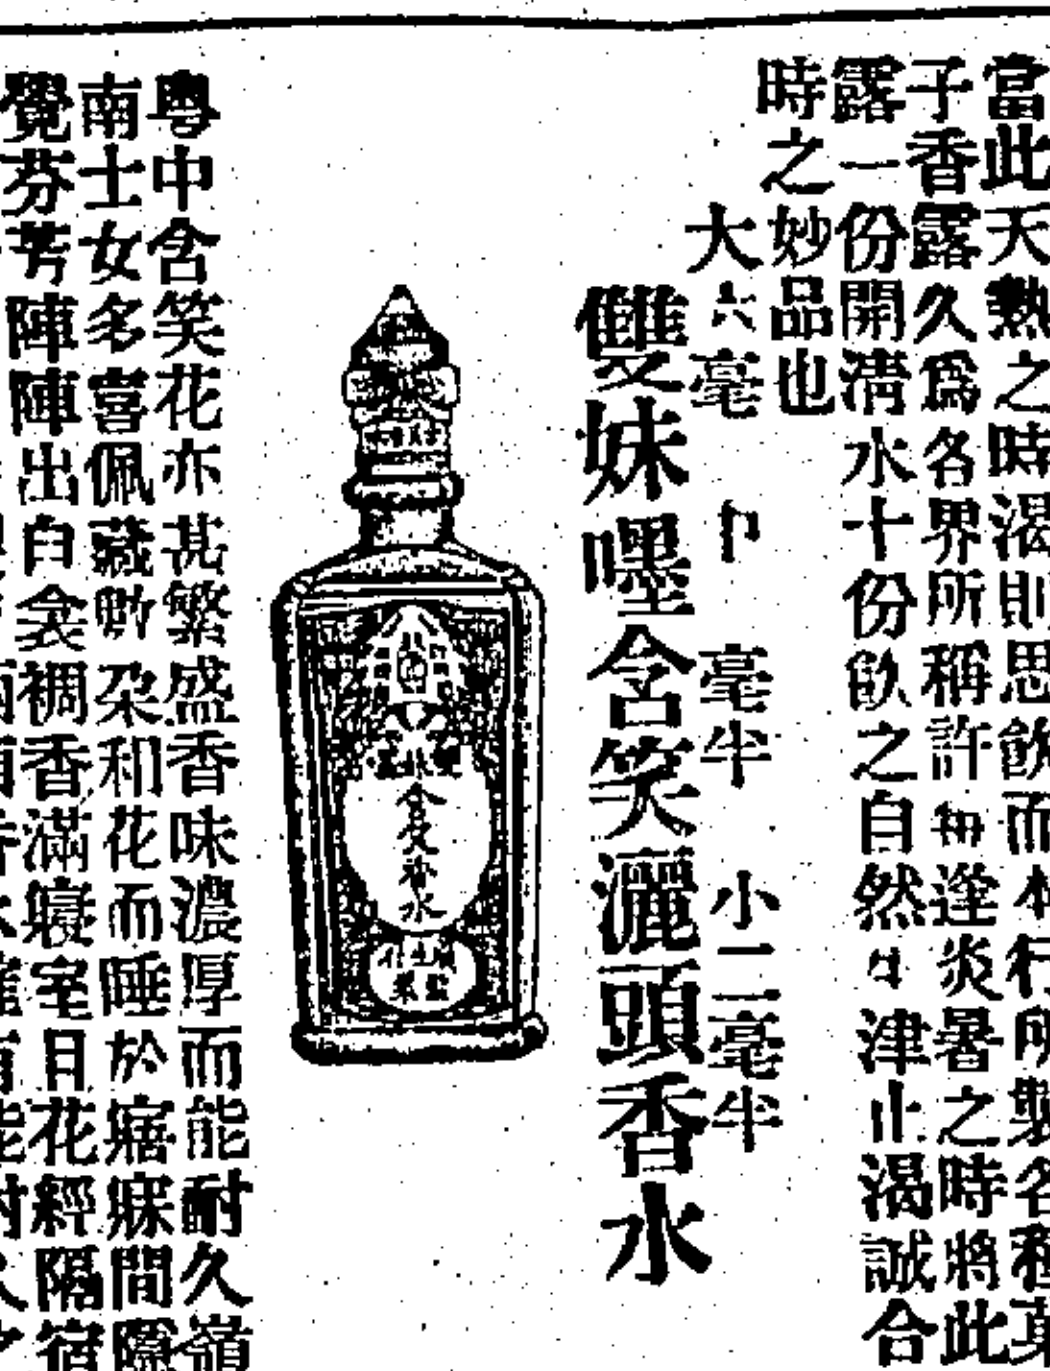 當此天熱之時渴則思飲而本行所製名種菓
子香露久為各界所稱許如逢炎暑之時將此
露一份開清水十份飲之自然生津止渴誠合
時之妙品也
大六毫 中毫半 小二毫半
雙妹嘿含笑灑頭香水
雙妹
含笑香水
粵中含笑花亦甚繁盛香味濃厚而能耐久嶺
南士女多喜佩藏數朶和花而睡於寤寐間隱
覺芬芳陣陣出自衾裯香滿寢室日花經隔宿